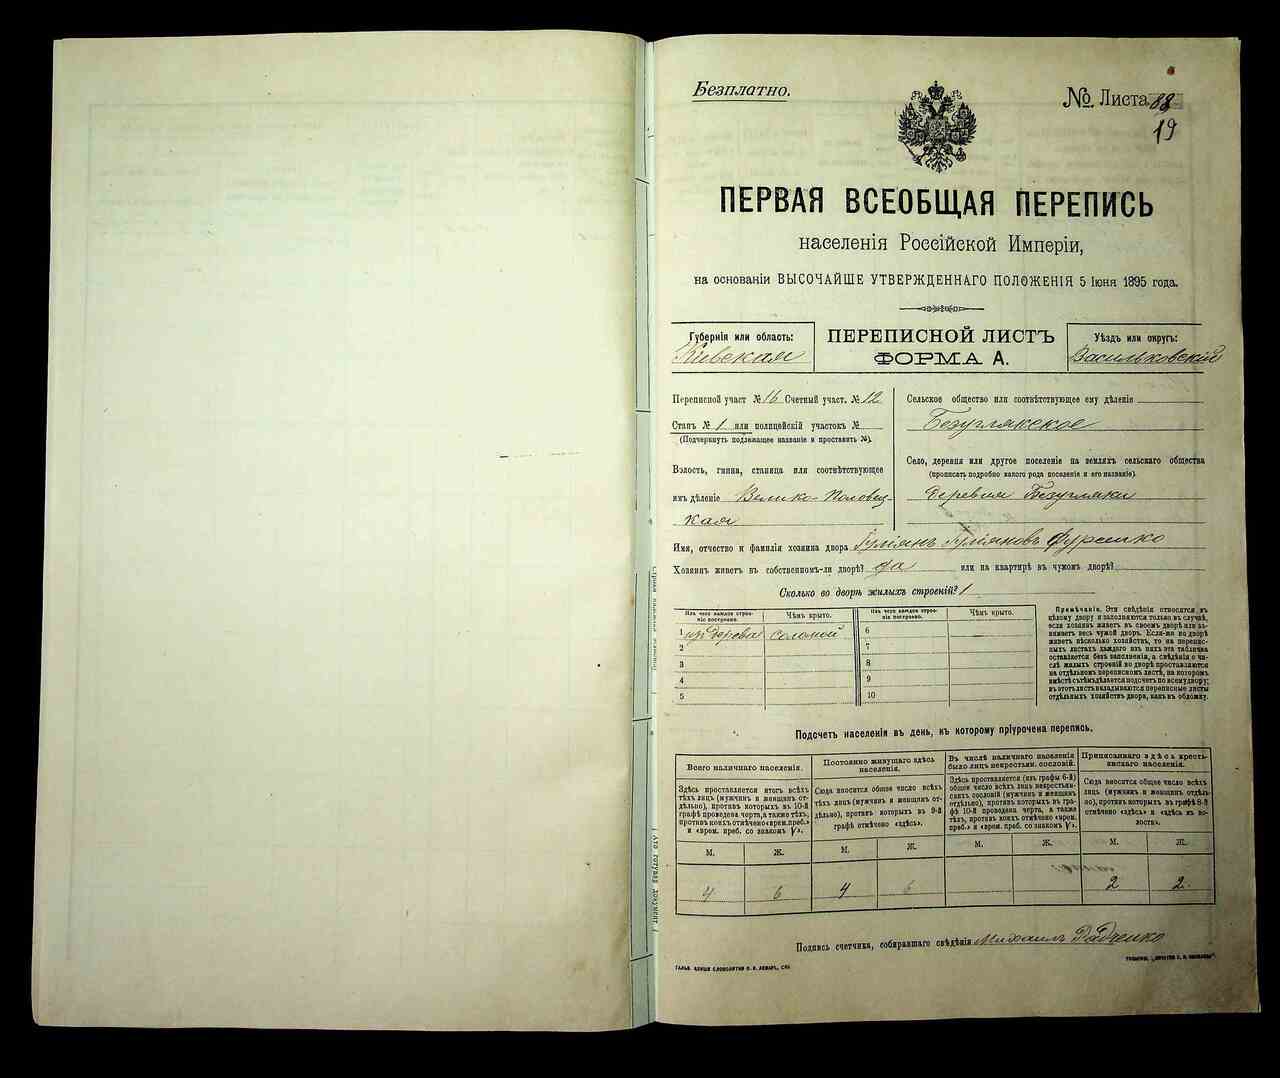 Безплатно.
№ Листа 88
19
ПЕРВАЯ ВСЕОБЩАЯ ПЕРЕПИСЬ
населенія Россійской Имперіи,
на основаніи ВЫСОЧАЙШЕ УТВЕРЖДЕННАГО ПОЛОЖЕНІЯ 5 Іюня 1895 года.
Губернія или область:
Кіевская
ПЕРЕПИСНОЙ ЛИСТЪ
ФОРМА А.
Уѣздъ или округъ:
Васильковскій
Переписной участ № 16 Счетный участ. № 12
Станъ № 1 или полицейскій участокъ №
(Подчеркнуть подлежащее названіе и проставить №).
Волость, гмина, станица или соотвѣтствующее
имъ дѣленіе Велико-Половец-
кая
Сельское общество или соотвѣтствующее ему дѣленіе
Безуглякское
Село, деревня или другое поселеніе на земляхъ сельскаго общества
(прописать подробно какого рода поселеніе и его названіе).
деревня Безугляки
Имя, отчество и фамилія хозяина двора
Хозяинъ живетъ въ собственномъ-ли дворѣ? да или на квартирѣ въ чужомъ дворѣ?
Сколько во дворѣ жилыхъ строеній? 1
Изъ чего каждое строе-
ніе построено.
Чѣмъ крыто.
Изъ чего каждое строе-
ніе построено.
Чѣмъ крыто.
1 изъ дерева соломой 6
2 7
3 8
4 9
5 10
Примѣчаніе. Эти свѣдѣнія относятся къ
цѣлому двору и заполняются только въ случаѣ,
если хозяинъ живетъ въ своемъ дворѣ или за-
нимаетъ весь чужой дворъ. Если-же во дворѣ
живетъ нѣсколько хозяйствъ, то на перепис-
ныхъ листахъ каждаго изъ нихъ эта табличка
оставляется безъ заполненія, а свѣдѣнія о чи-
слѣ жилыхъ строеній во дворѣ проставляются
на отдѣльномъ переписномъ листѣ, на которомъ
вмѣстѣ съ тѣмъ дѣлается подсчетъ по всему двору;
въ этотъ листъ вкладываются переписные листы
отдѣльныхъ хозяйствъ двора, какъ въ обложку.
Подсчетъ населенія въ день, къ которому пріурочена перепись.
Всего наличнаго населенія.
Здѣсь проставляется итогъ всѣхъ
тѣхъ лицъ (мужчинъ и женщинъ от-
дѣльно), противъ которыхъ въ 10-й
графѣ проведена черта, а также тѣхъ,
противъ коихъ отмѣчено «врем. преб.»
и «врем. преб. со знакомъ V».
Постоянно живущаго здѣсь
населенія.
Сюда вносится общее число всѣхъ
тѣхъ лицъ (мужчинъ и женщинъ от-
дѣльно), противъ которыхъ въ 9-й
графѣ отмѣчено «здѣсь».
Въ числѣ наличнаго населенія
было лицъ некрестьян. сословій.
Здѣсь проставляется (изъ графы 6-й)
общее число всѣхъ лицъ некрестьян-
скихъ сословій (мужчинъ и женщинъ
отдѣльно), противъ которыхъ въ гра-
фѣ 10-й проведена черта, а также
тѣхъ, противъ коихъ отмѣчено «врем.
преб.» и «врем. преб. со знакомъ V».
Приписаннаго здѣсь кресть-
янскаго населенія.
Сюда вносится общее число всѣхъ
лицъ (мужчинъ и женщинъ отдѣль-
но), противъ которыхъ въ графѣ 8-й
отмѣчено «здѣсь» и «здѣсь въ во-
лости».
М. Ж. М. Ж. М. Ж. М. Ж.
4 6 4 6 2 2
Подпись счетчика, собиравшаго свѣдѣнія Михаилъ Радченко